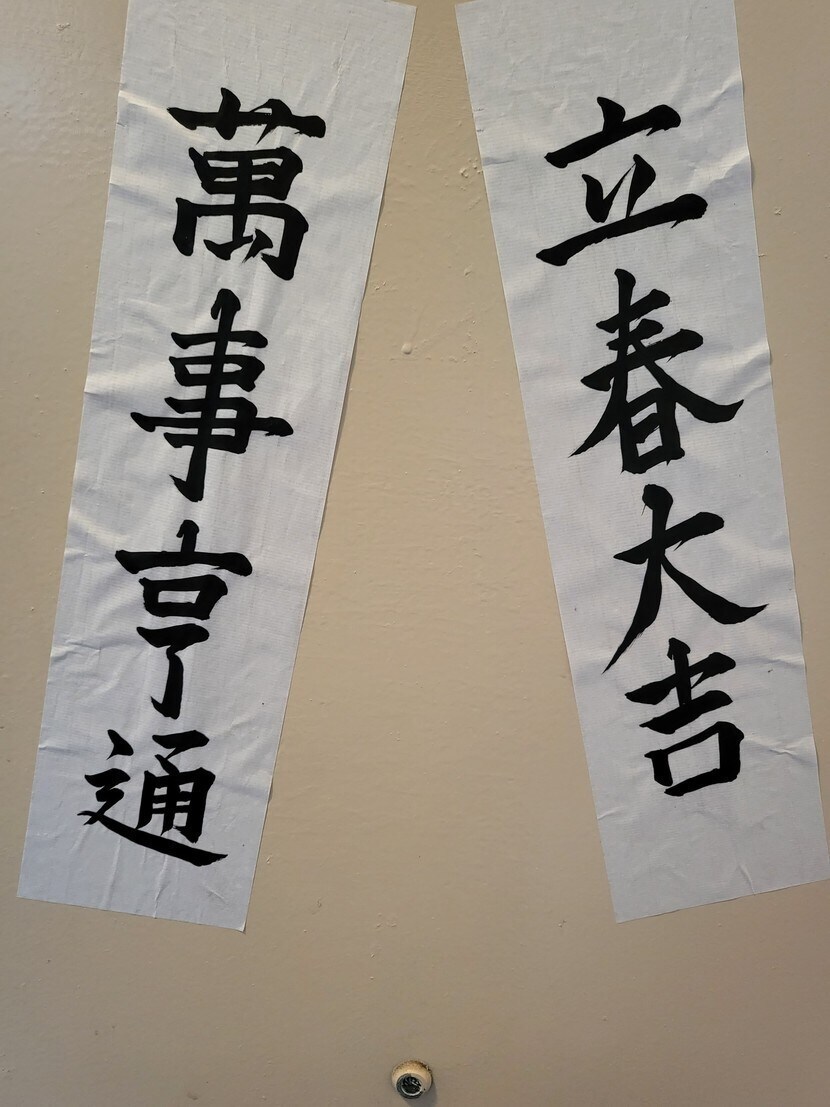 立春大吉
萬事亨通